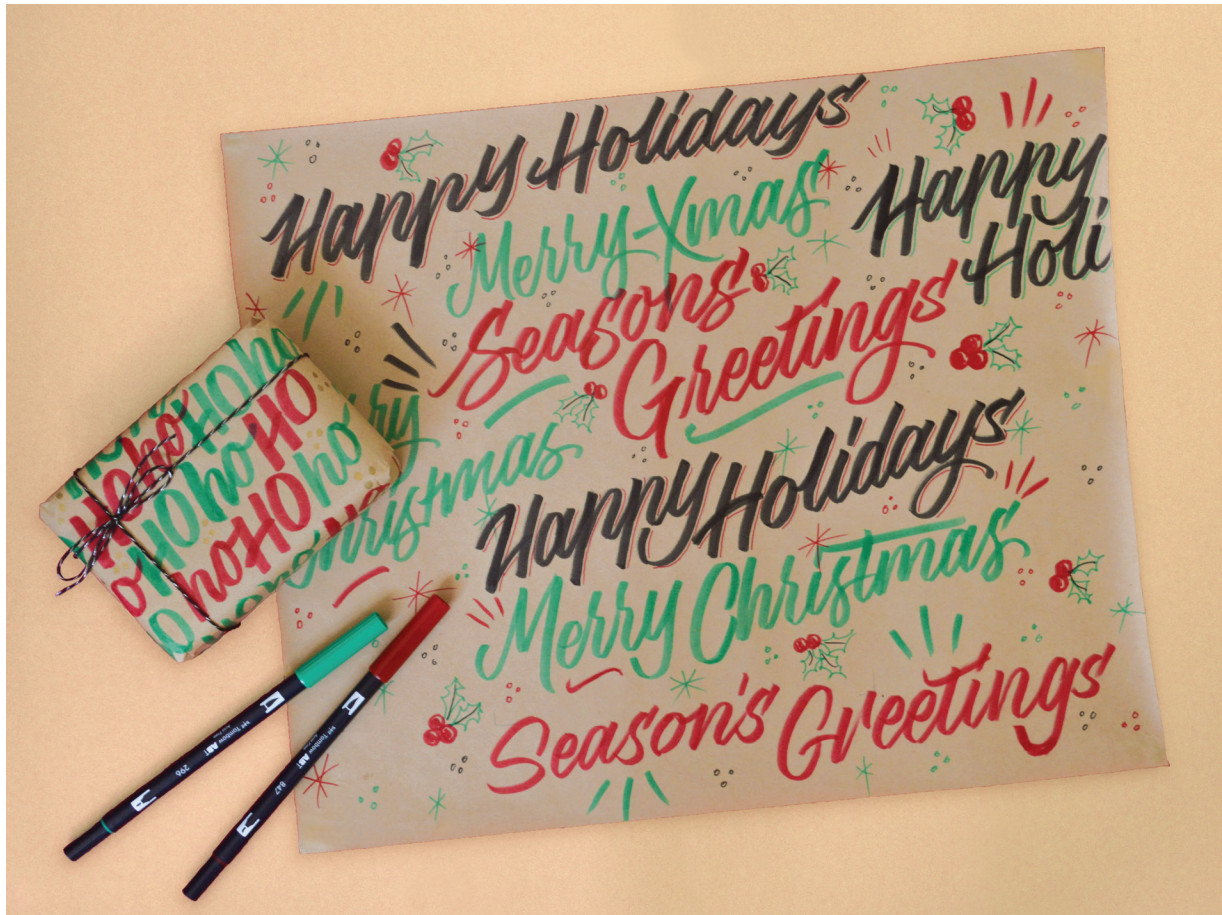 Happy Holidays
Merry Xmas
Happy
Holi
Seasons
Greetings
rry
Christmas
Happy Holidays
Merry Christmas
Season's Greetings
HohoHOho
HOhoHO
hoHOho
Tombow ABT
296
Tombow ABT
847